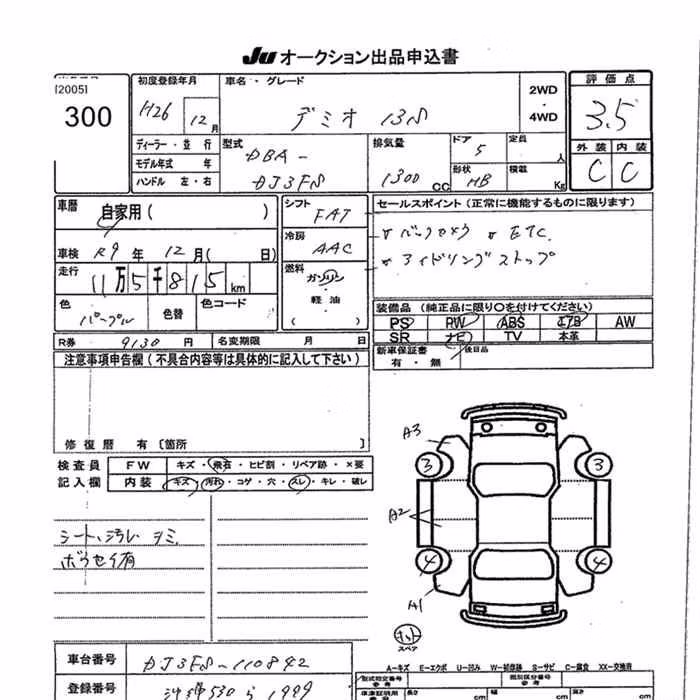 JU オークション出品申込書
[2005]
300
初度登録年月
H26
12月
車名・グレード
デミオ 13S
2WD
・
4WD
評価点
3.5
外装 内装
C C
ディーラー・並行
モデル年式 年
ハンドル 左・右
型式
DBA-
DJ3FS
排気量
1300CC
ドア
5
形状
HB
定員
人
積載
Kg
車歴
自家用( )
車検 R9年 12月( 日)
走行
11万5千815km
色
パープル
色替
色コード
シフト
FAT
冷房
AAC
燃料
ガソリン
・
軽油
セールスポイント(正常に機能するものに限ります)
バックカメラ ETC
アイドリングストップ
装備品(純正品に限り○を付けてください)
PS PW ABS エアB AW
SR ナビ TV 本革
R券 9130円
名変期限 月 日
新車保証書
有・無
後日品
注意事項申告欄(不具合内容等は具体的に記入して下さい)
修復歴 有〔箇所 〕
検査員
記入欄
FW キズ・飛石・ヒビ割・リペア跡・×要
内装 キズ・汚れ・コゲ・穴・スレ・キレ・破レ
シート、汚レ シミ.
ボウセイ有
A3
3 3
A2
4 4
A1
スペア
A-キズ E-エクボ U-凹み W-補修跡 S-サビ C-腐食 XX-交換済
車台番号 DJ3FS-110842
登録番号 沖縄530る1999
型式指定番号
参考
類別区分番号
参考
長さ cm
幅 cm
高さ cm